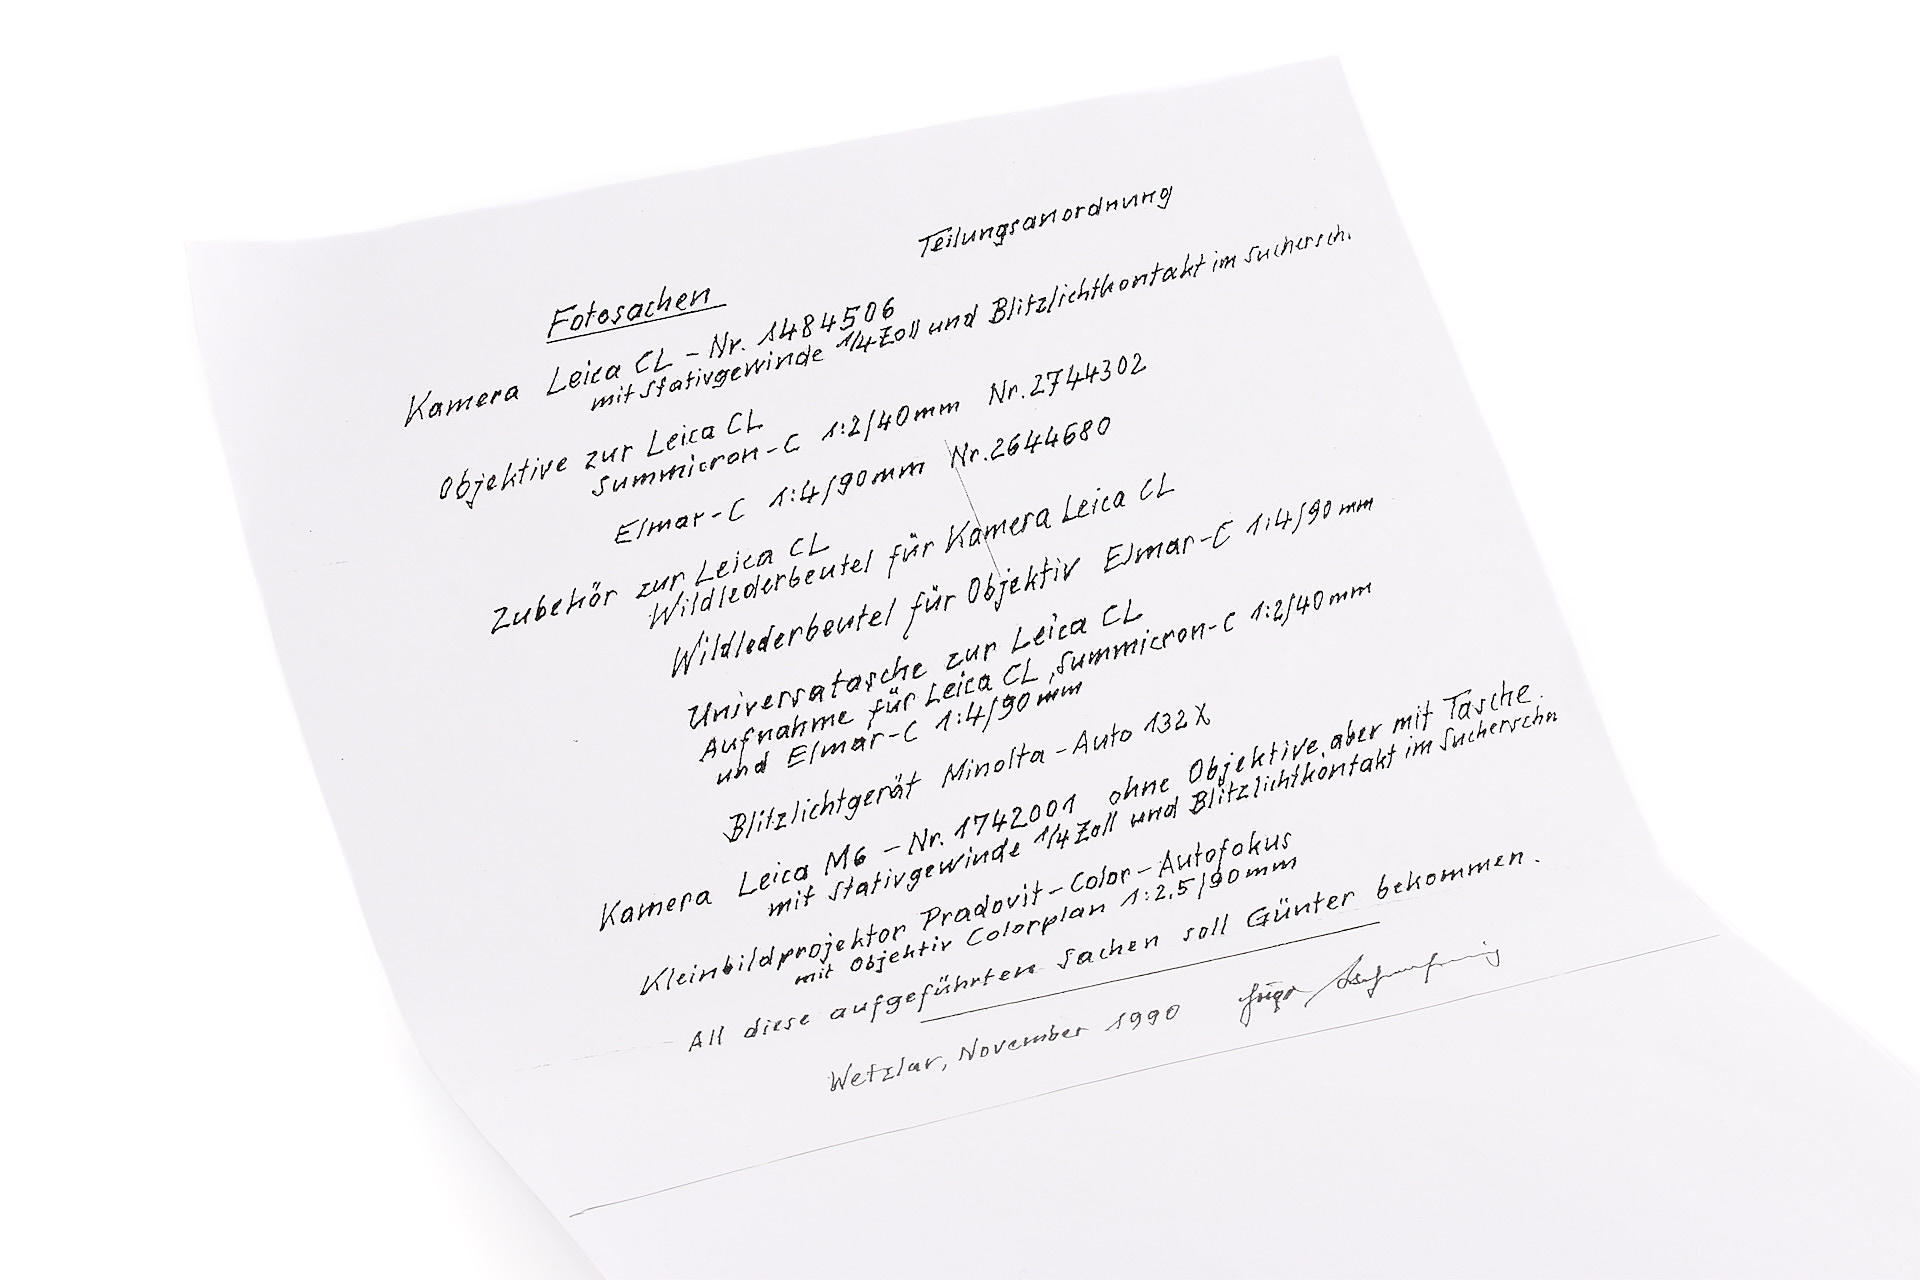 Teilungsanordnung
Fotosachen
Kamera Leica CL - Nr. 1484506
mit Stativgewinde 1/4 Zoll und Blitzlichtkontakt im Suchersch.
Objektive zur Leica CL
Summicron-C 1:2/40mm Nr. 2744302
Elmar-C 1:4/90mm Nr. 2644680
Zubehör zur Leica CL
Wildlederbeutel für Kamera Leica CL
Wildlederbeutel für Objektiv Elmar-C 1:4/90mm
Universatasche zur Leica CL
Aufnahme für Leica CL, Summicron-C 1:2/40mm
und Elmar-C 1:4/90mm
Blitzlichtgerät Minolta-Auto 132X
Kamera Leica M6 - Nr. 1742001 ohne Objektive, aber mit Tasche.
mit Stativgewinde 1/4 Zoll und Blitzlichtkontakt im Sucherschn
Kleinbildprojektor Pradovit-Color-Autofokus
mit Objektiv Colorplan 1:2,5/90mm
All diese aufgeführten Sachen soll Günter bekommen.
Wetzlar, November 1990